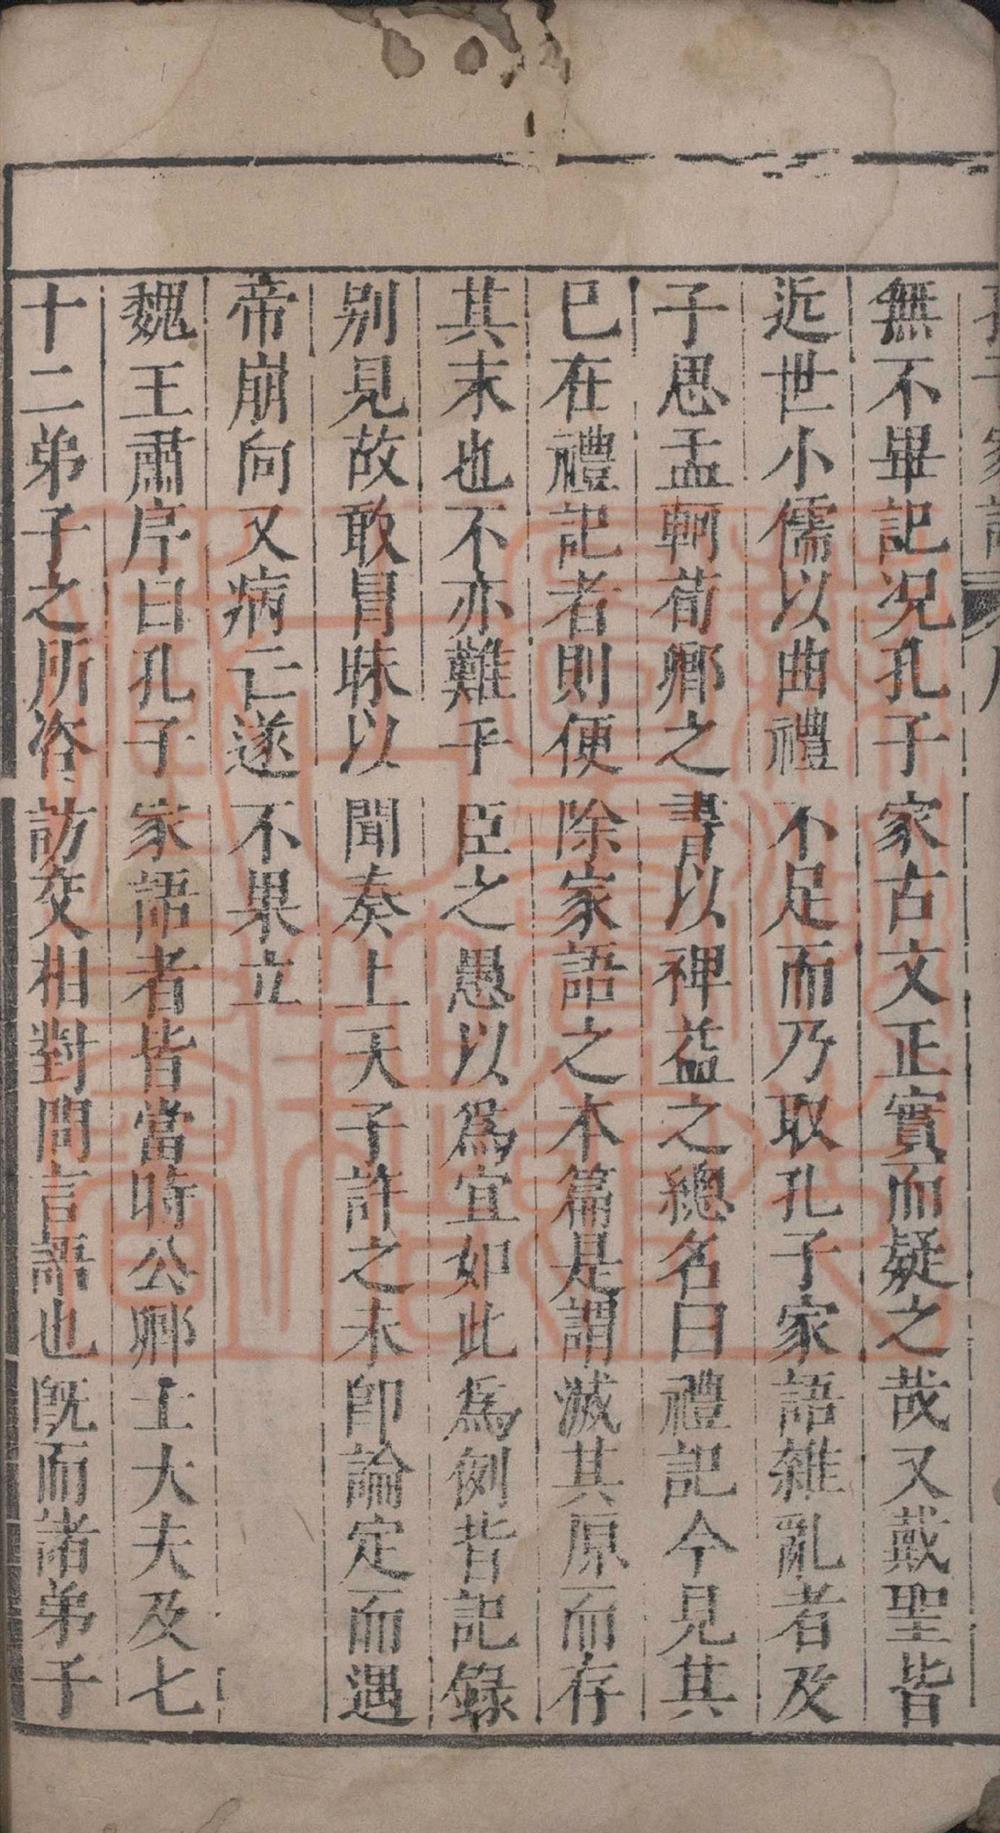 無不畢記况孔子家古文正實而疑之哉又戴聖皆
近世小儒以曲禮不足而乃取孔子家語雜亂者及
子思孟軻荀卿之書以裨益之總名曰禮記今見其
已在禮記者則便除家語之本篇是謂滅其原而存
其末也不亦難乎臣之愚以爲宜如此爲例皆記錄
别見故敢冒昧以聞奏上天子許之未即論定而遇
帝崩向又病亡遂不果立
魏王肅序曰孔子家語者皆當時公卿士大夫及七
十二弟子之所咨訪交相對問言語也既而諸弟子